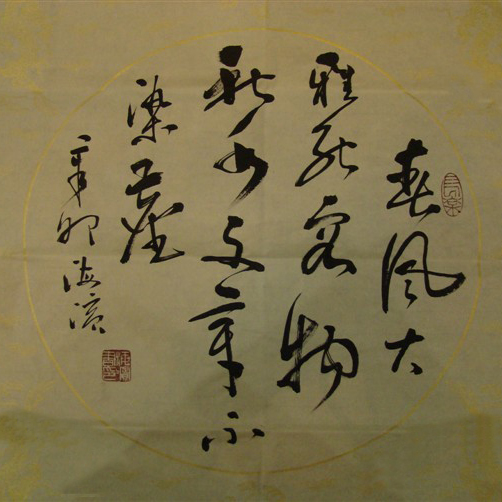 春風大
雅能容物
秋水文章不
染塵
辛卯海濱